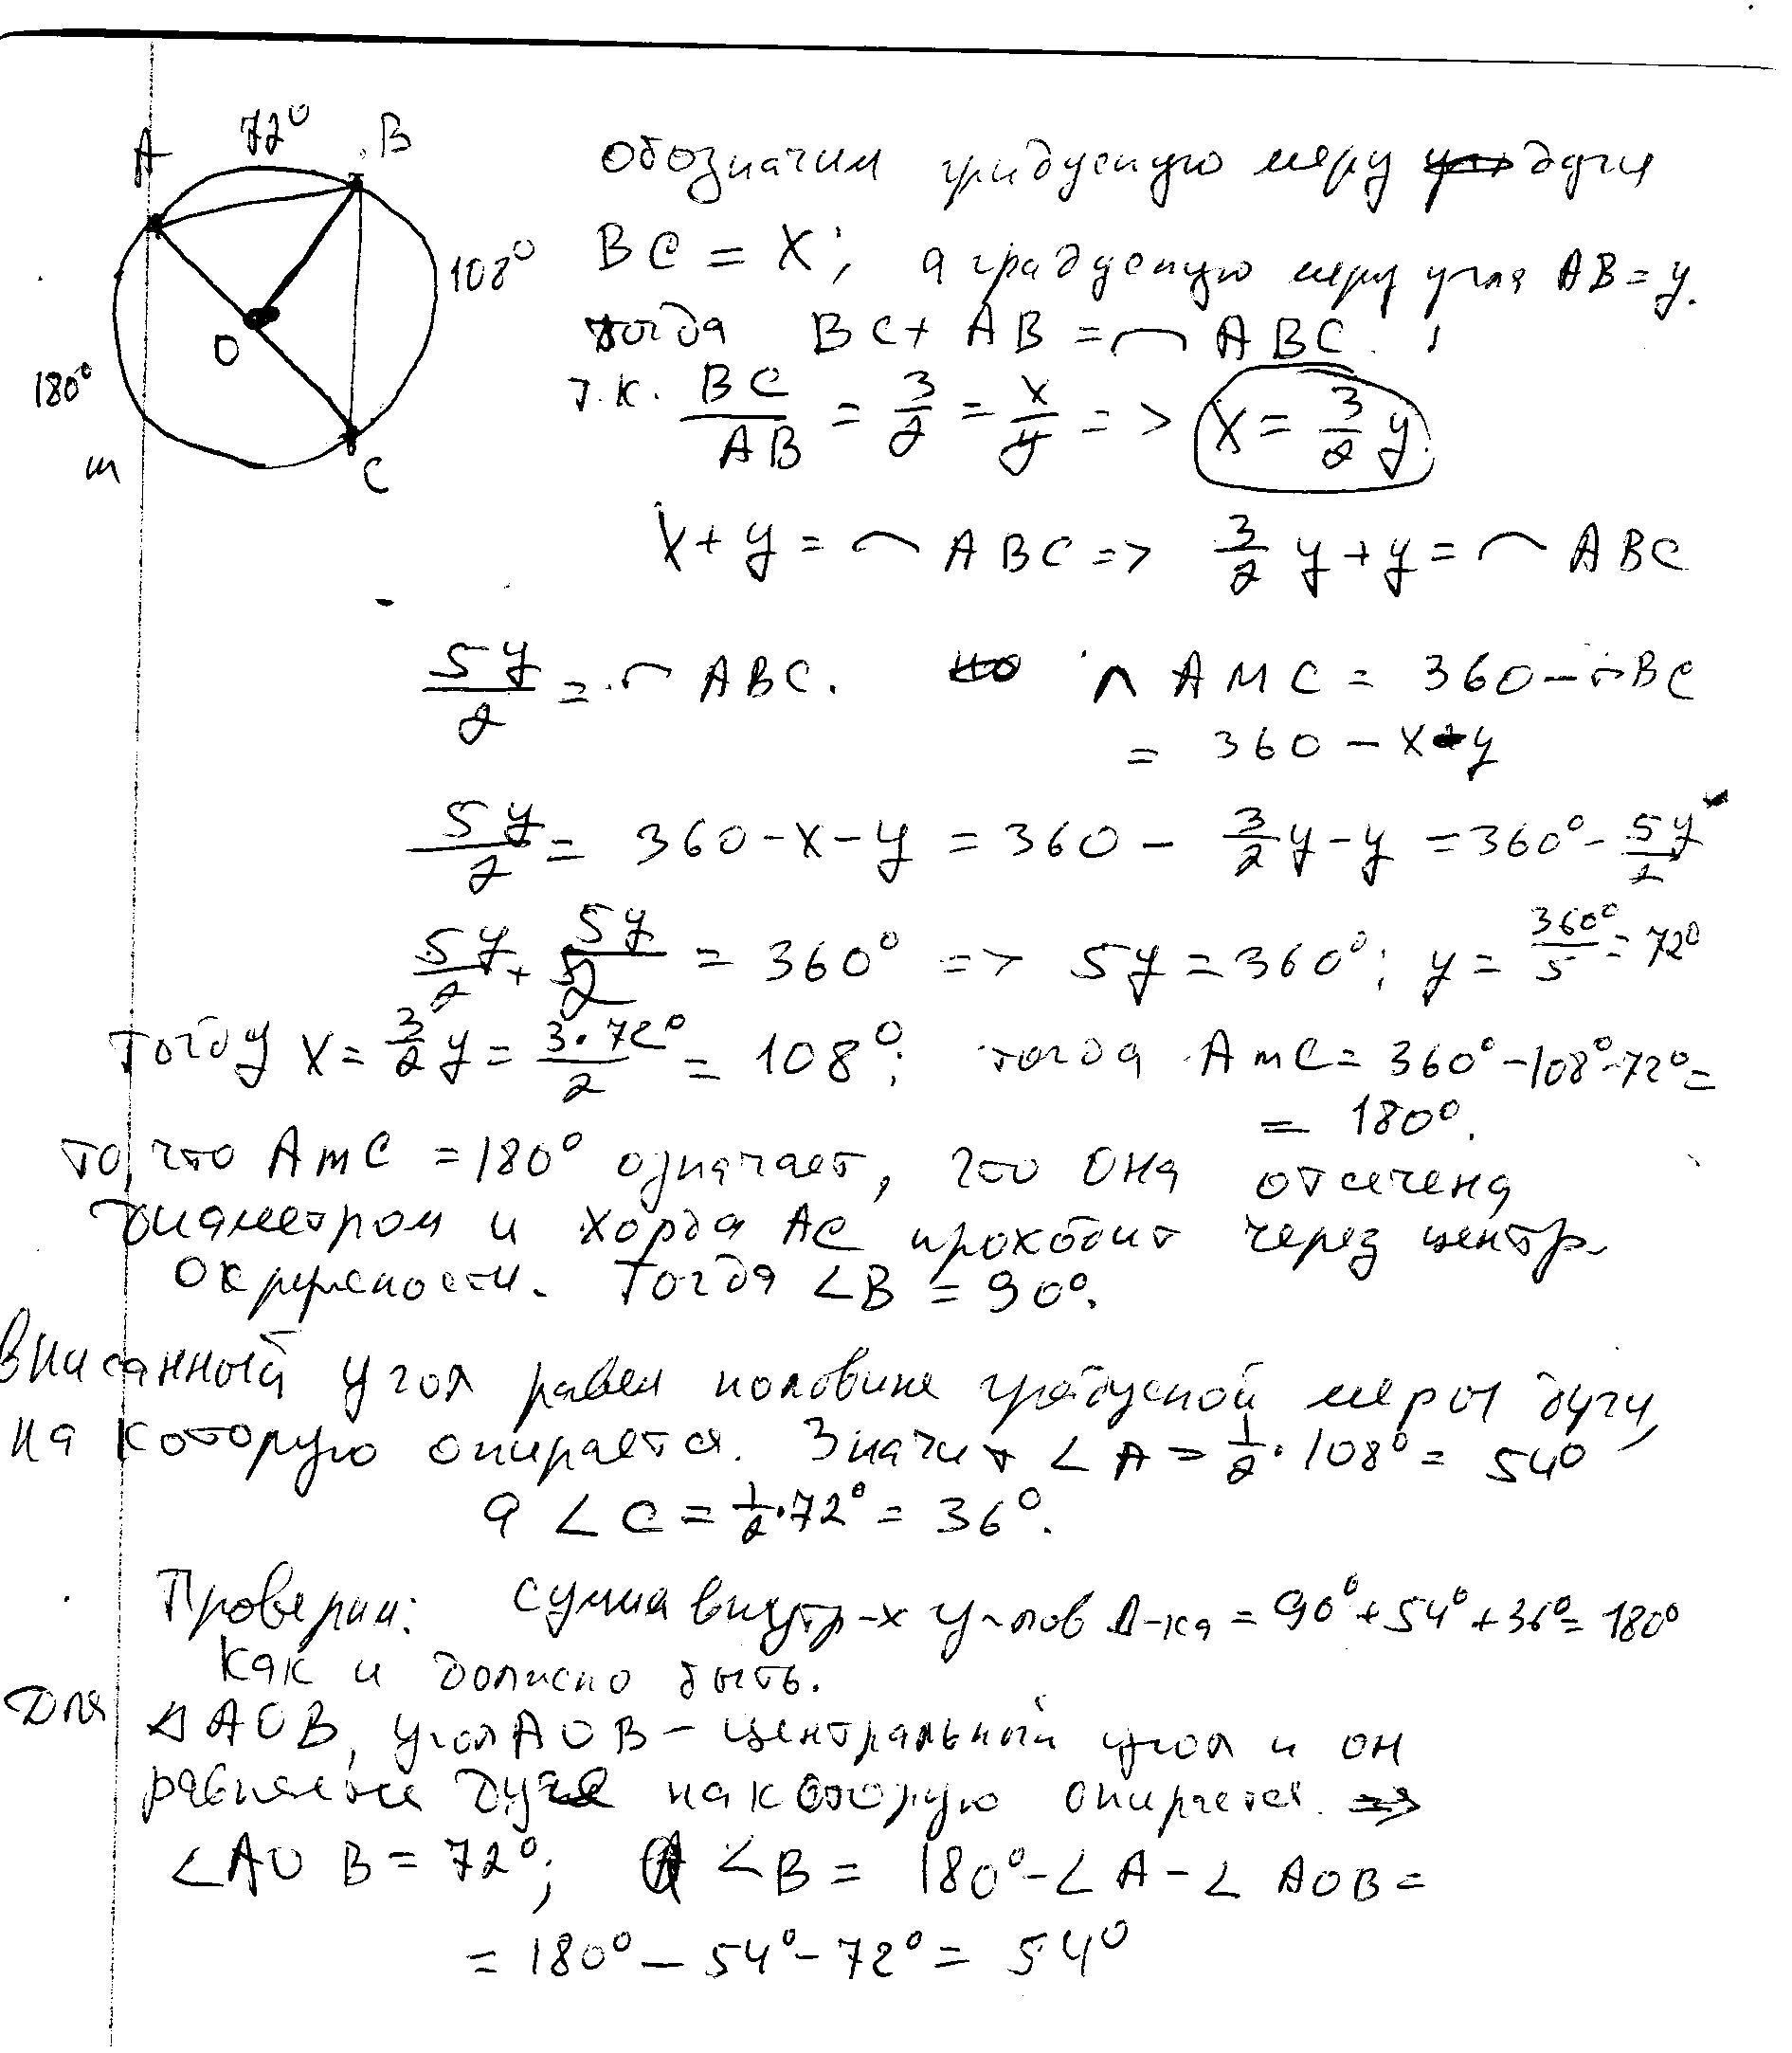 A 72° B
108°
O
180°
m
C
Обозначим градусную меру дуги
BC = X; а градусную меру угля AB = y.
тогда BC + AB = ⌒ ABC.
т.к. BC/AB = 3/2 = x/y => x = 3/2 y.
X + y = ⌒ ABC => 3/2 y + y = ⌒ ABC
5y/2 = ⌒ ABC. ⌒ AMC = 360 - ⌒BC
= 360 - x - y
5y/2 = 360 - x - y = 360 - 3/2 y - y = 360° - 5y/2
5y/2 + 5y/2 = 360° => 5y = 360°; y = 360°/5 = 72°
Тогду x = 3/2 y = 3·72°/2 = 108°; тогда AmC = 360° - 108° - 72° =
= 180°.
то, что AmC = 180° означает, что она отсечена
диаметром и хорда AC проходит через центр
окружности. Тогда ∠B = 90°.
вписанный угол равен половине градусной меры дуги,
на которую опирается. Значит ∠A = 1/2 · 108° = 54°
а ∠C = 1/2 · 72° = 36°.
Проверим: сумма внутр-х углов Δ-ка = 90° + 54° + 36° = 180°
как и должно быть.
Для Δ AOB, угол AOB - центральный угол и он
равен дуге на которую опирается =>
∠AOB = 72°; ∠B = 180° - ∠A - ∠AOB =
= 180° - 54° - 72° = 54°